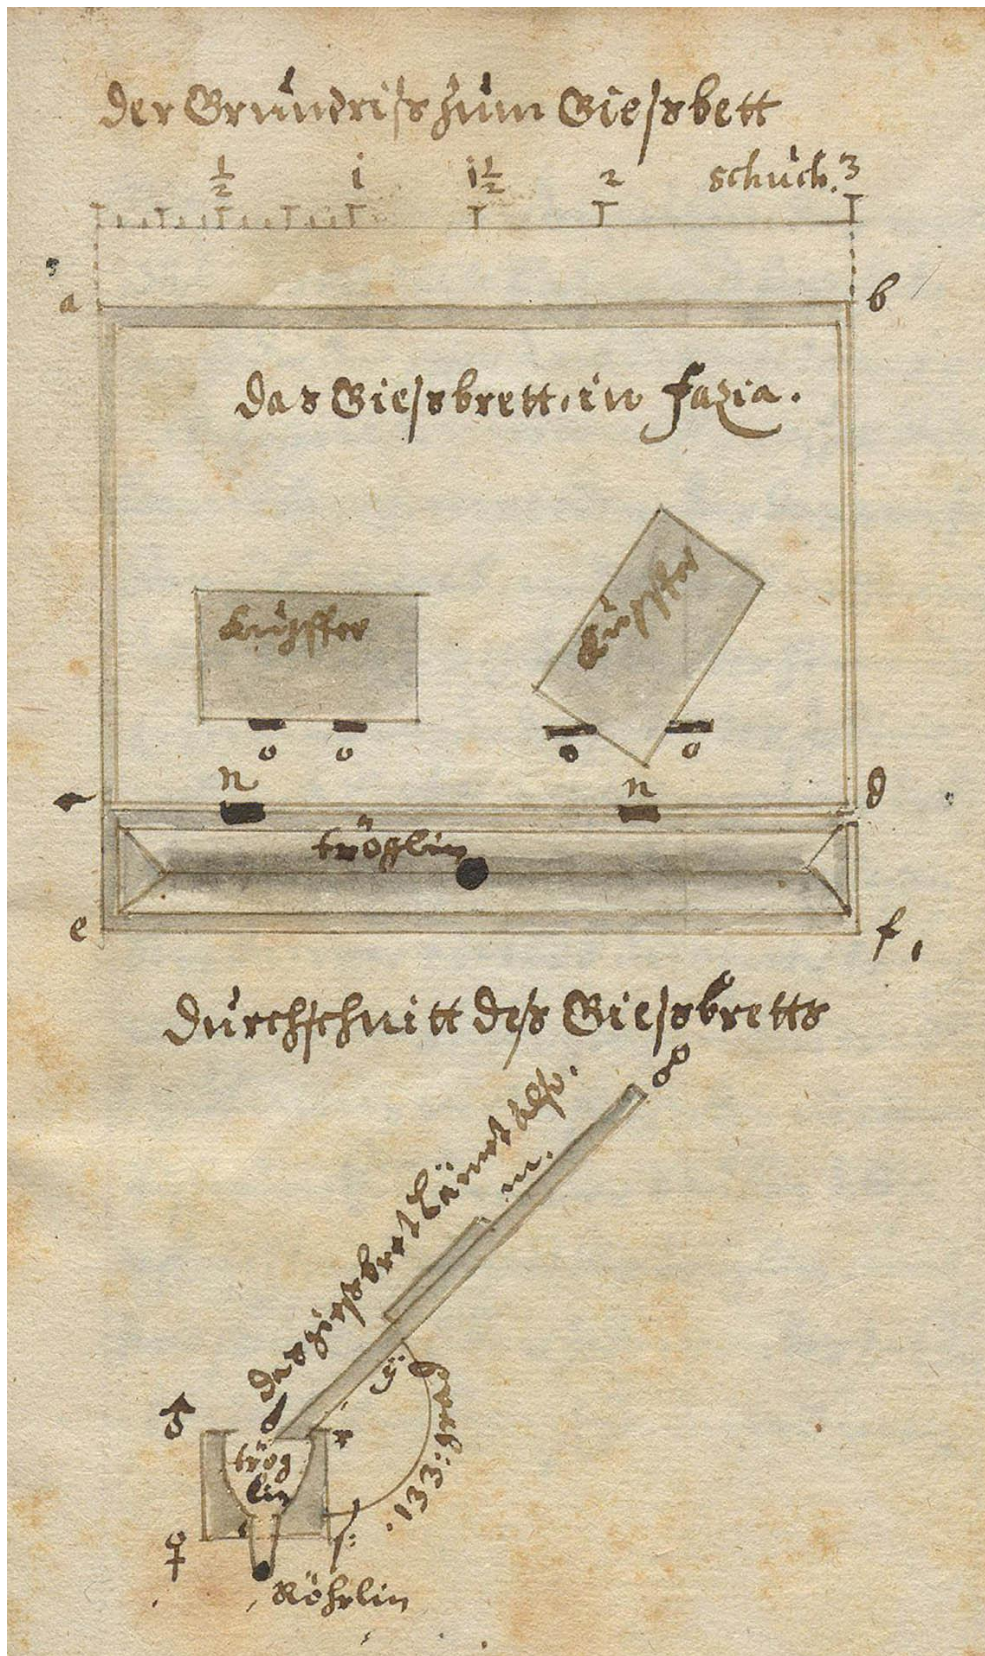 der Grundriſs zum Gieſsbett
½ 1 1½ 2 schuch. 3
a b
das Gieſsbrett in fazia.
Kupffer Kupffer
o o o o
n n
d
tröglin
e f
durchschnitt deſs Gieſsbretts
m.
y.
133: grad
trög
lin
r
f:
Röhrlin